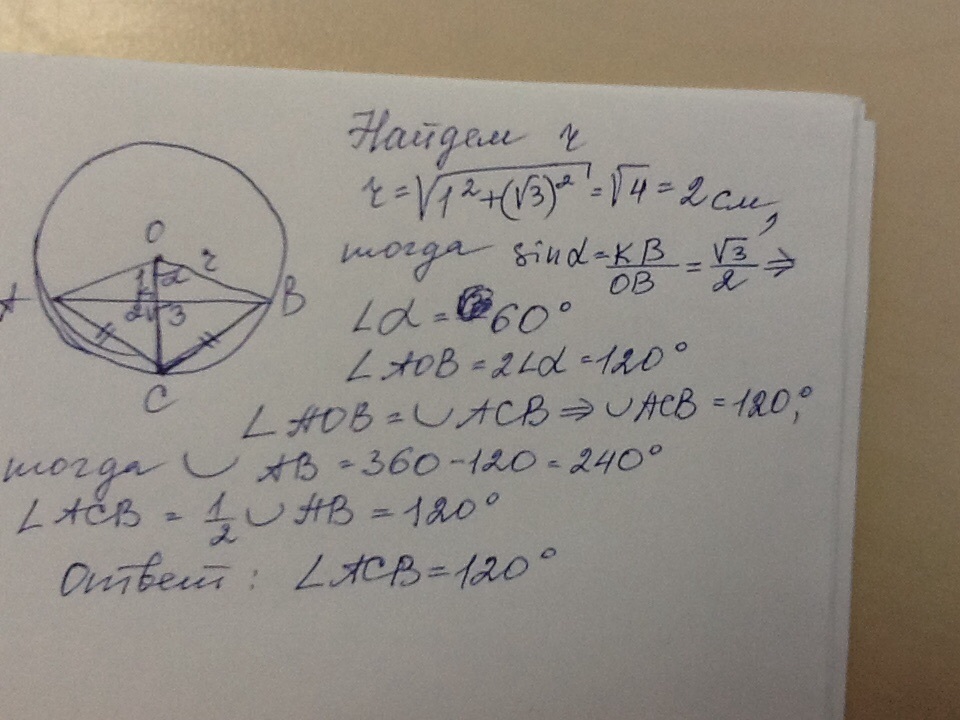 Найдем r
r = √(1² + (√3)²) = √4 = 2 см,
тогда sinα = KB/OB = √3/2 ⇒
∠α = 60°
∠AOB = 2∠α = 120°
∠AOB = ◡ ACB ⇒ ◡ACB = 120°,
тогда ◡ AB = 360 - 120 = 240°
∠ACB = 1/2 ◡ AB = 120°
Ответ: ∠ACB = 120°
O
r
1 α
A
B
2 3
C